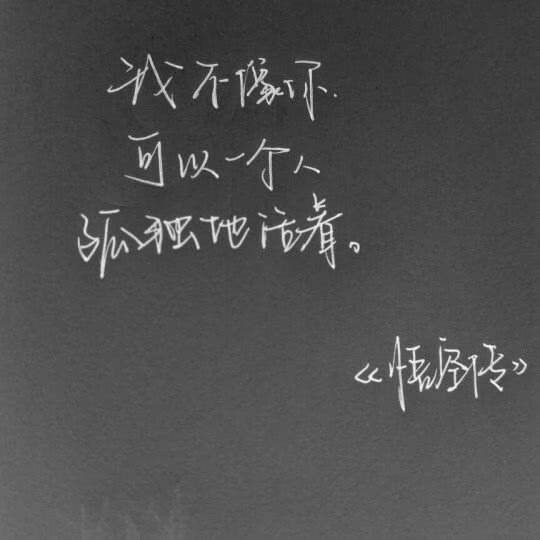 我不像你
可以一个人
孤独地活着。
《悟空传》